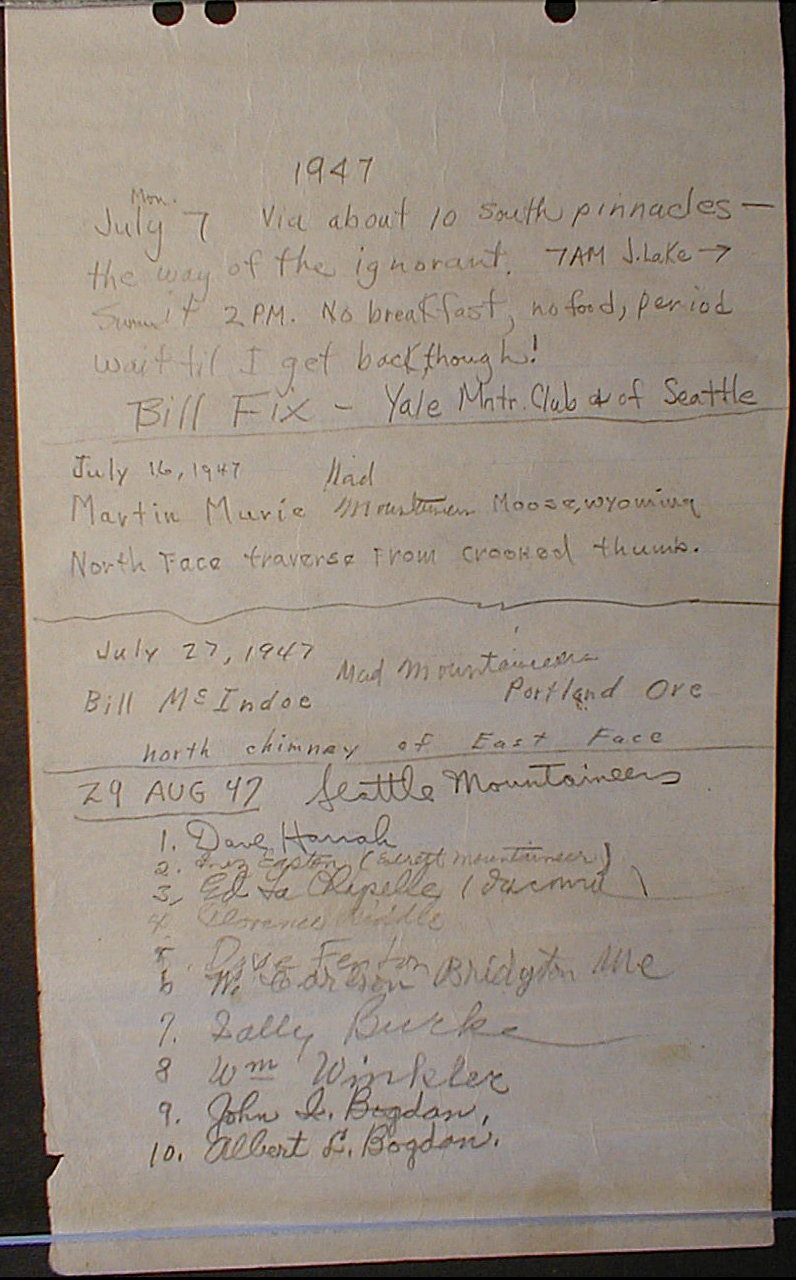 1947
Mon.
July 7 Via about 10 south pinnacles —
the way of the ignorant. 7AM J.Lake →
Summit 2 PM. No breakfast, no food, period
wait til I get back, though!
Bill Fix - Yale Mntr. Club & of Seattle
July 16, 1947 Mad
Martin Murie Mountaineers Moose, Wyoming
North Face traverse From crooked thumb.
July 27, 1947 Mad Mountaineers
Bill McIndoe Portland Ore
north chimney of East Face
29 AUG 47 Seattle Mountaineers
1. Dave Harrah
2. Inez Easton (Everett Mountaineer)
3. Ed La Chapelle (Tacoma)
4 Florence Riddle
5 Dave Fenton
6 W. Carlson Bridgton Me
7. Sally Burke
8 Wm Winkler
9. John I. Bogdan,
10. Albert L. Bogdan.